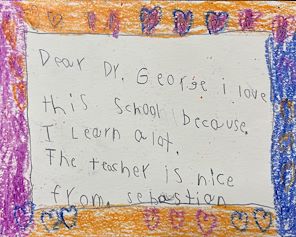 Dear Dr. George i love
this school because.
I Learn a lot.
The teacher is nice
from. sebastian